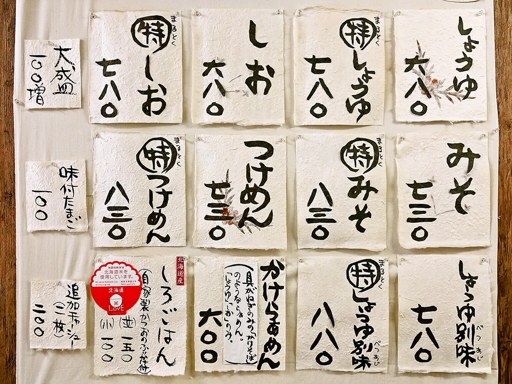 しょうゆ
六八〇
まるとく
特しょうゆ
七八〇
しお
六八〇
まるとく
特しお
七八〇
大盛
一〇〇増
みそ
七三〇
まるとく
特みそ
八三〇
つけめん
七三〇
まるとく
特つけめん
八三〇
味付たまご
一〇〇
しょうゆ別味
べつあじ
七八〇
まるとく
特しょうゆ別味
べつあじ
八八〇
かけらぁめん
六〇〇
北海道産
しろごはん
(並)一五〇
(小)一〇〇
北海道米を
使用しています。
北海道
LOVE
追加チャーシュー
(二枚)
二〇〇